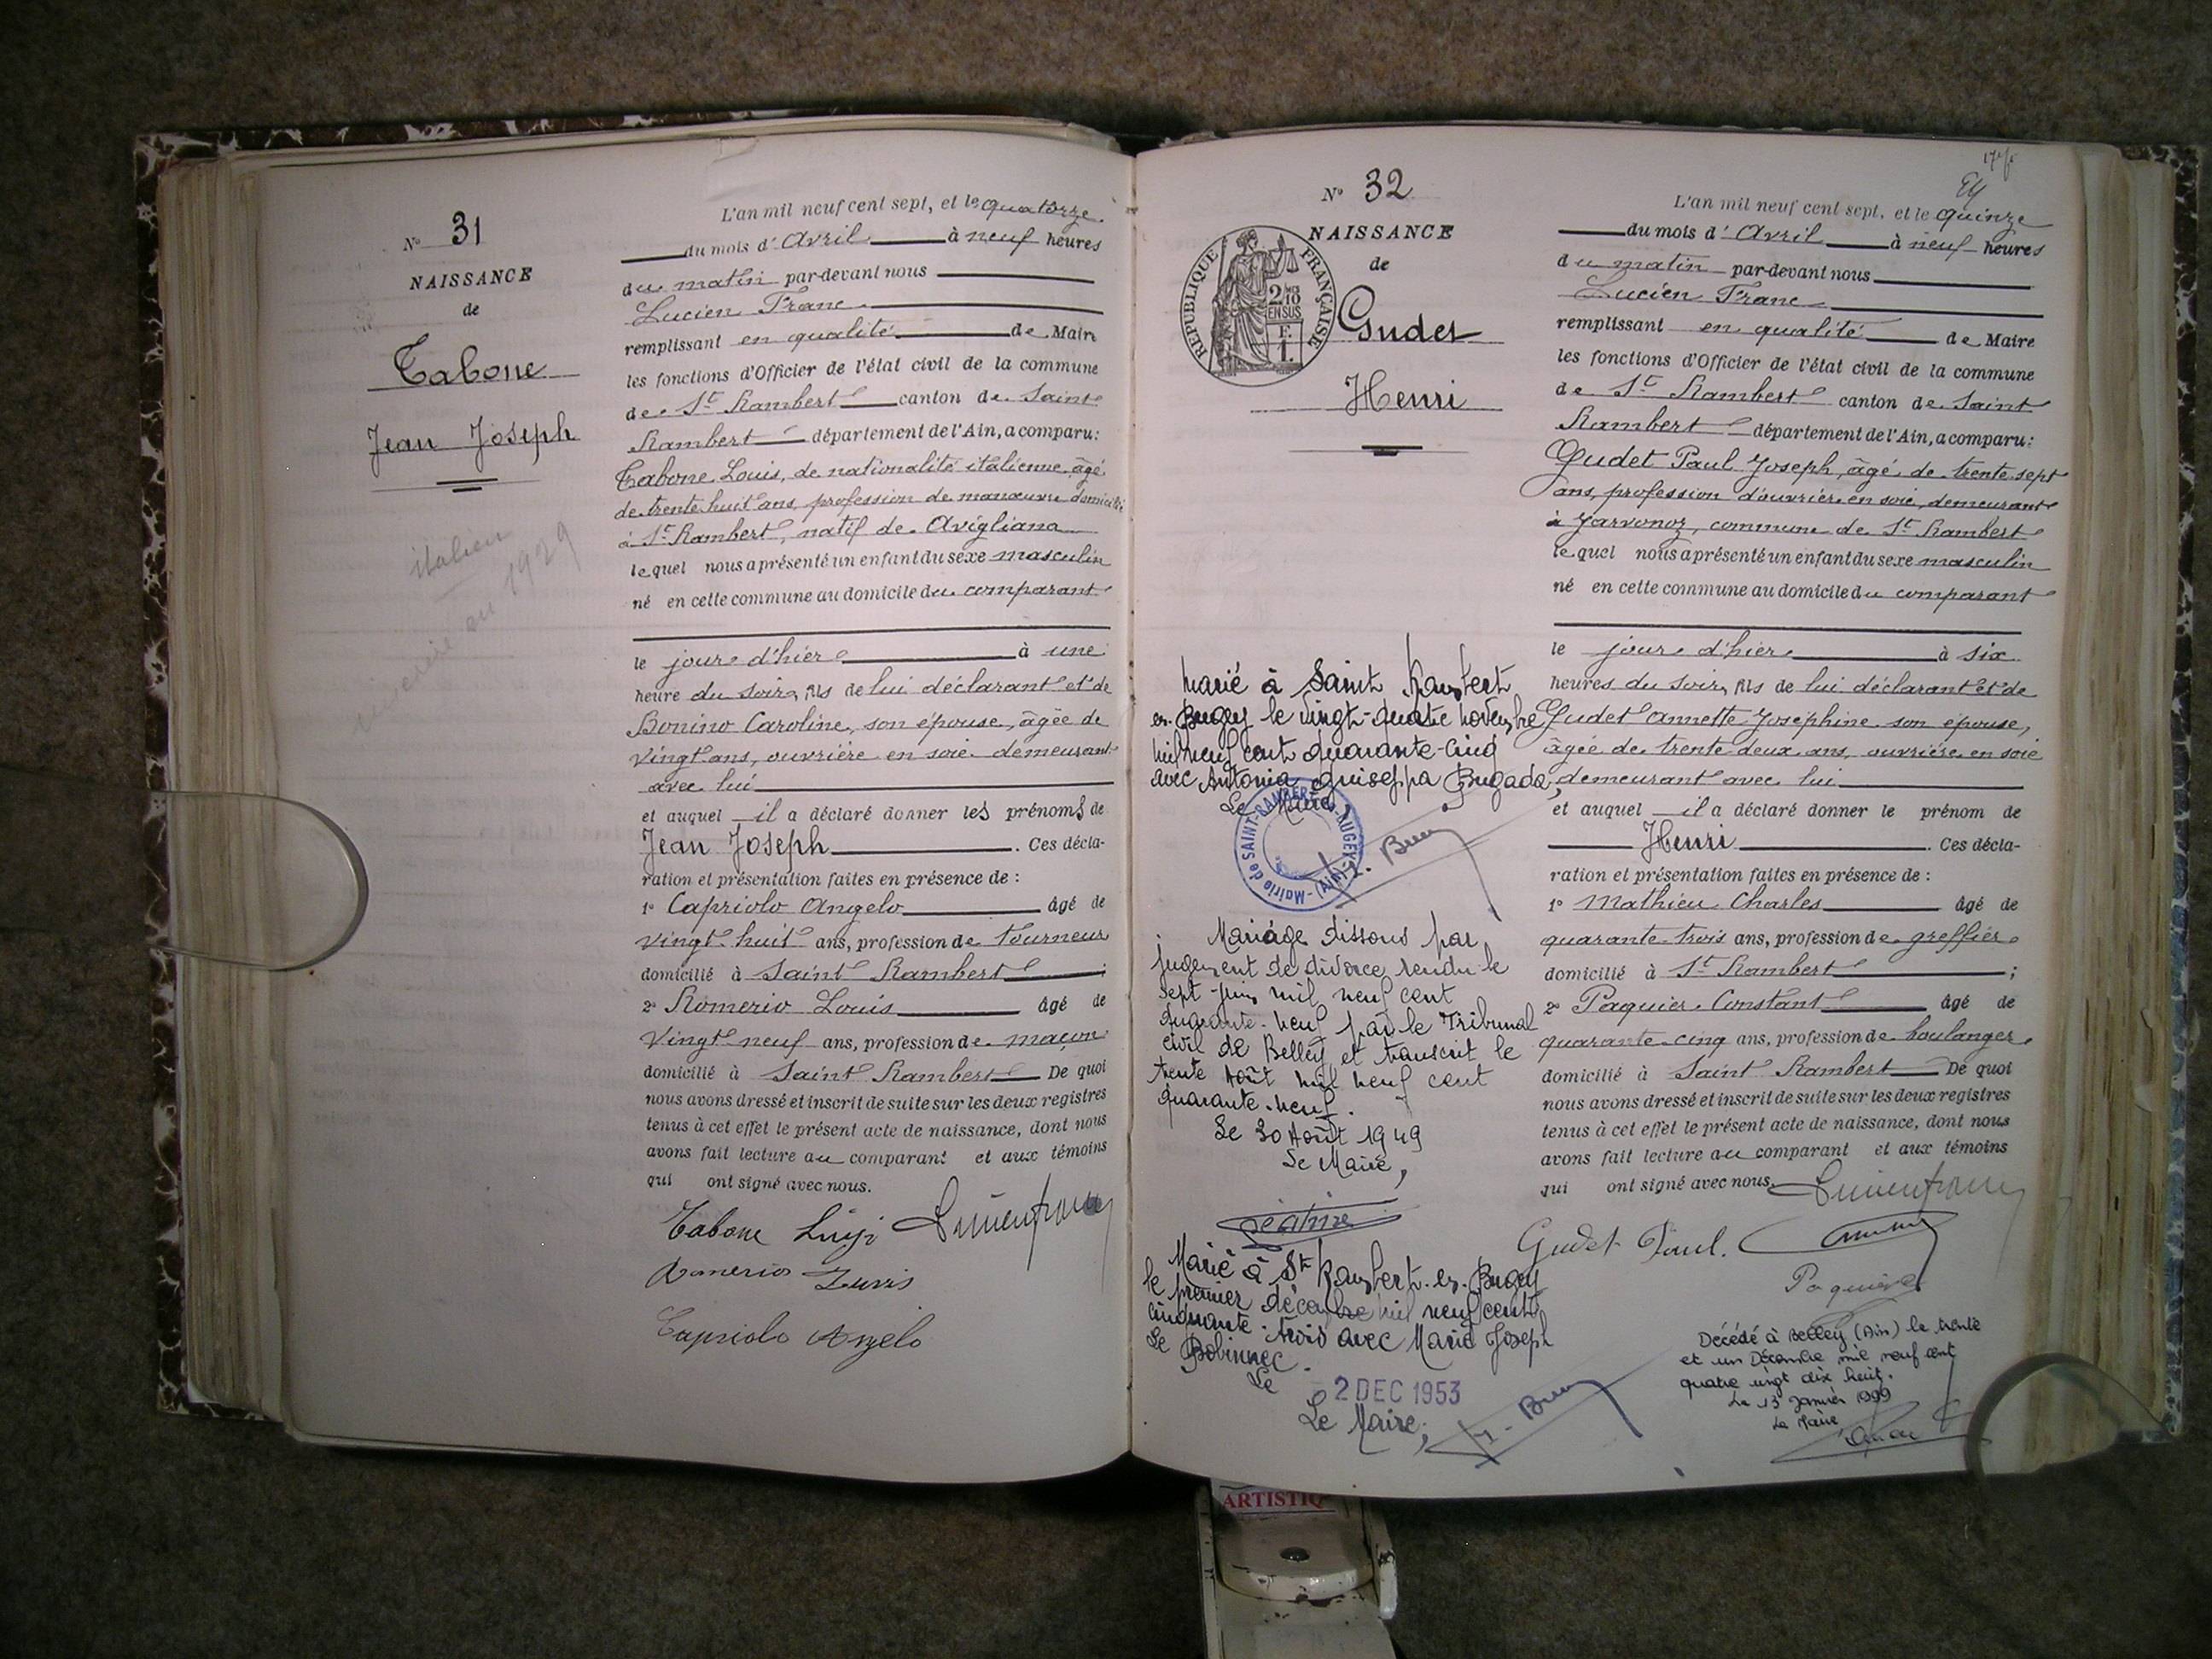 Nº 31
NAISSANCE
de
Tabone
Jean Joseph
italien
1929
L'an mil neuf cent sept, et le quatorze
du mois d'Avril à neuf heures
du matin par-devant nous
Lucien Franc
remplissant en qualité de Maire
les fonctions d'Officier de l'état civil de la commune
de St Rambert canton de Saint
Rambert département de l'Ain, a comparu:
Tabone Louis, de nationalité italienne, âgé
de trente huit ans, profession de manœuvre domicilié
à St Rambert, natif de Avigliana
lequel nous a présenté un enfant du sexe masculin
né en cette commune au domicile du comparant
le jour d'hier à une
heure du soir, fils de lui déclarant et de
Bonino Caroline, son épouse, âgée de
vingt ans, ouvrière en soie demeurant
avec lui
et auquel il a déclaré donner les prénoms de
Jean Joseph. Ces décla-
ration et présentation faites en présence de :
1º Capriolo Angelo âgé de
vingt huit ans, profession de tourneur
domicilié à Saint Rambert ;
2º Romerio Louis âgé de
vingt neuf ans, profession de maçon
domicilié à Saint Rambert De quoi
nous avons dressé et inscrit de suite sur les deux registres
tenus à cet effet le présent acte de naissance, dont nous
avons fait lecture au comparant et aux témoins
qui ont signé avec nous.
Tabone Luigi Lucien Franc
Romerio Luvis
Capriolo Angelo
Nº 32
NAISSANCE
de
Gudet
Henri
RÉPUBLIQUE FRANÇAISE
2/10
EN SUS
F.
1.
marié à Saint Rambert
en-Bugey le vingt-quatre novembre
mil neuf cent quarante-cinq
avec Antonia Guiseppa Bugada,
Le Maire,
Mairie de SAINT-RAMBERT-en-BUGEY (Ain)
Mariage dissous par
jugement de divorce rendu le
sept juin mil neuf cent
quarante-neuf par le Tribunal
civil de Belley et transcrit le
trente Août mil neuf cent
quarante-neuf.
Le 30 Août 1949
Le Maire,
Marié à St Rambert-en-Bugey
le premier décembre mil neuf cent
cinquante-trois avec Marie Joseph
Le Bobinnec.
Le 2 DEC 1953
Le Maire,
L'an mil neuf cent sept, et le quinze
du mois d'Avril à neuf heures
du matin par-devant nous
Lucien Franc
remplissant en qualité de Maire
les fonctions d'Officier de l'état civil de la commune
de St Rambert canton de Saint
Rambert département de l'Ain, a comparu:
Gudet Paul Joseph, âgé de trente sept
ans, profession d'ouvrier en soie, demeurant
à Javornoz, commune de St Rambert
lequel nous a présenté un enfant du sexe masculin
né en cette commune au domicile du comparant
le jour d'hier à six
heures du soir, fils de lui déclarant et de
Gudet Annette Joséphine son épouse,
âgée de trente deux ans, ouvrière en soie
demeurant avec lui
et auquel il a déclaré donner le prénom de
Henri. Ces décla-
ration et présentation faites en présence de :
1º Mathieu Charles âgé de
quarante-trois ans, profession de greffier
domicilié à St Rambert ;
2º Paquier Constant âgé de
quarante-cinq ans, profession de boulanger
domicilié à Saint Rambert De quoi
nous avons dressé et inscrit de suite sur les deux registres
tenus à cet effet le présent acte de naissance, dont nous
avons fait lecture au comparant et aux témoins
qui ont signé avec nous. Lucien Franc
Gudet Paul.
Paquier
Décédé à Belley (Ain) le trente
et un Décembre mil neuf cent
quatre vingt dix huit.
Le 13 Janvier 1999
Le Maire
ARTISTIQ